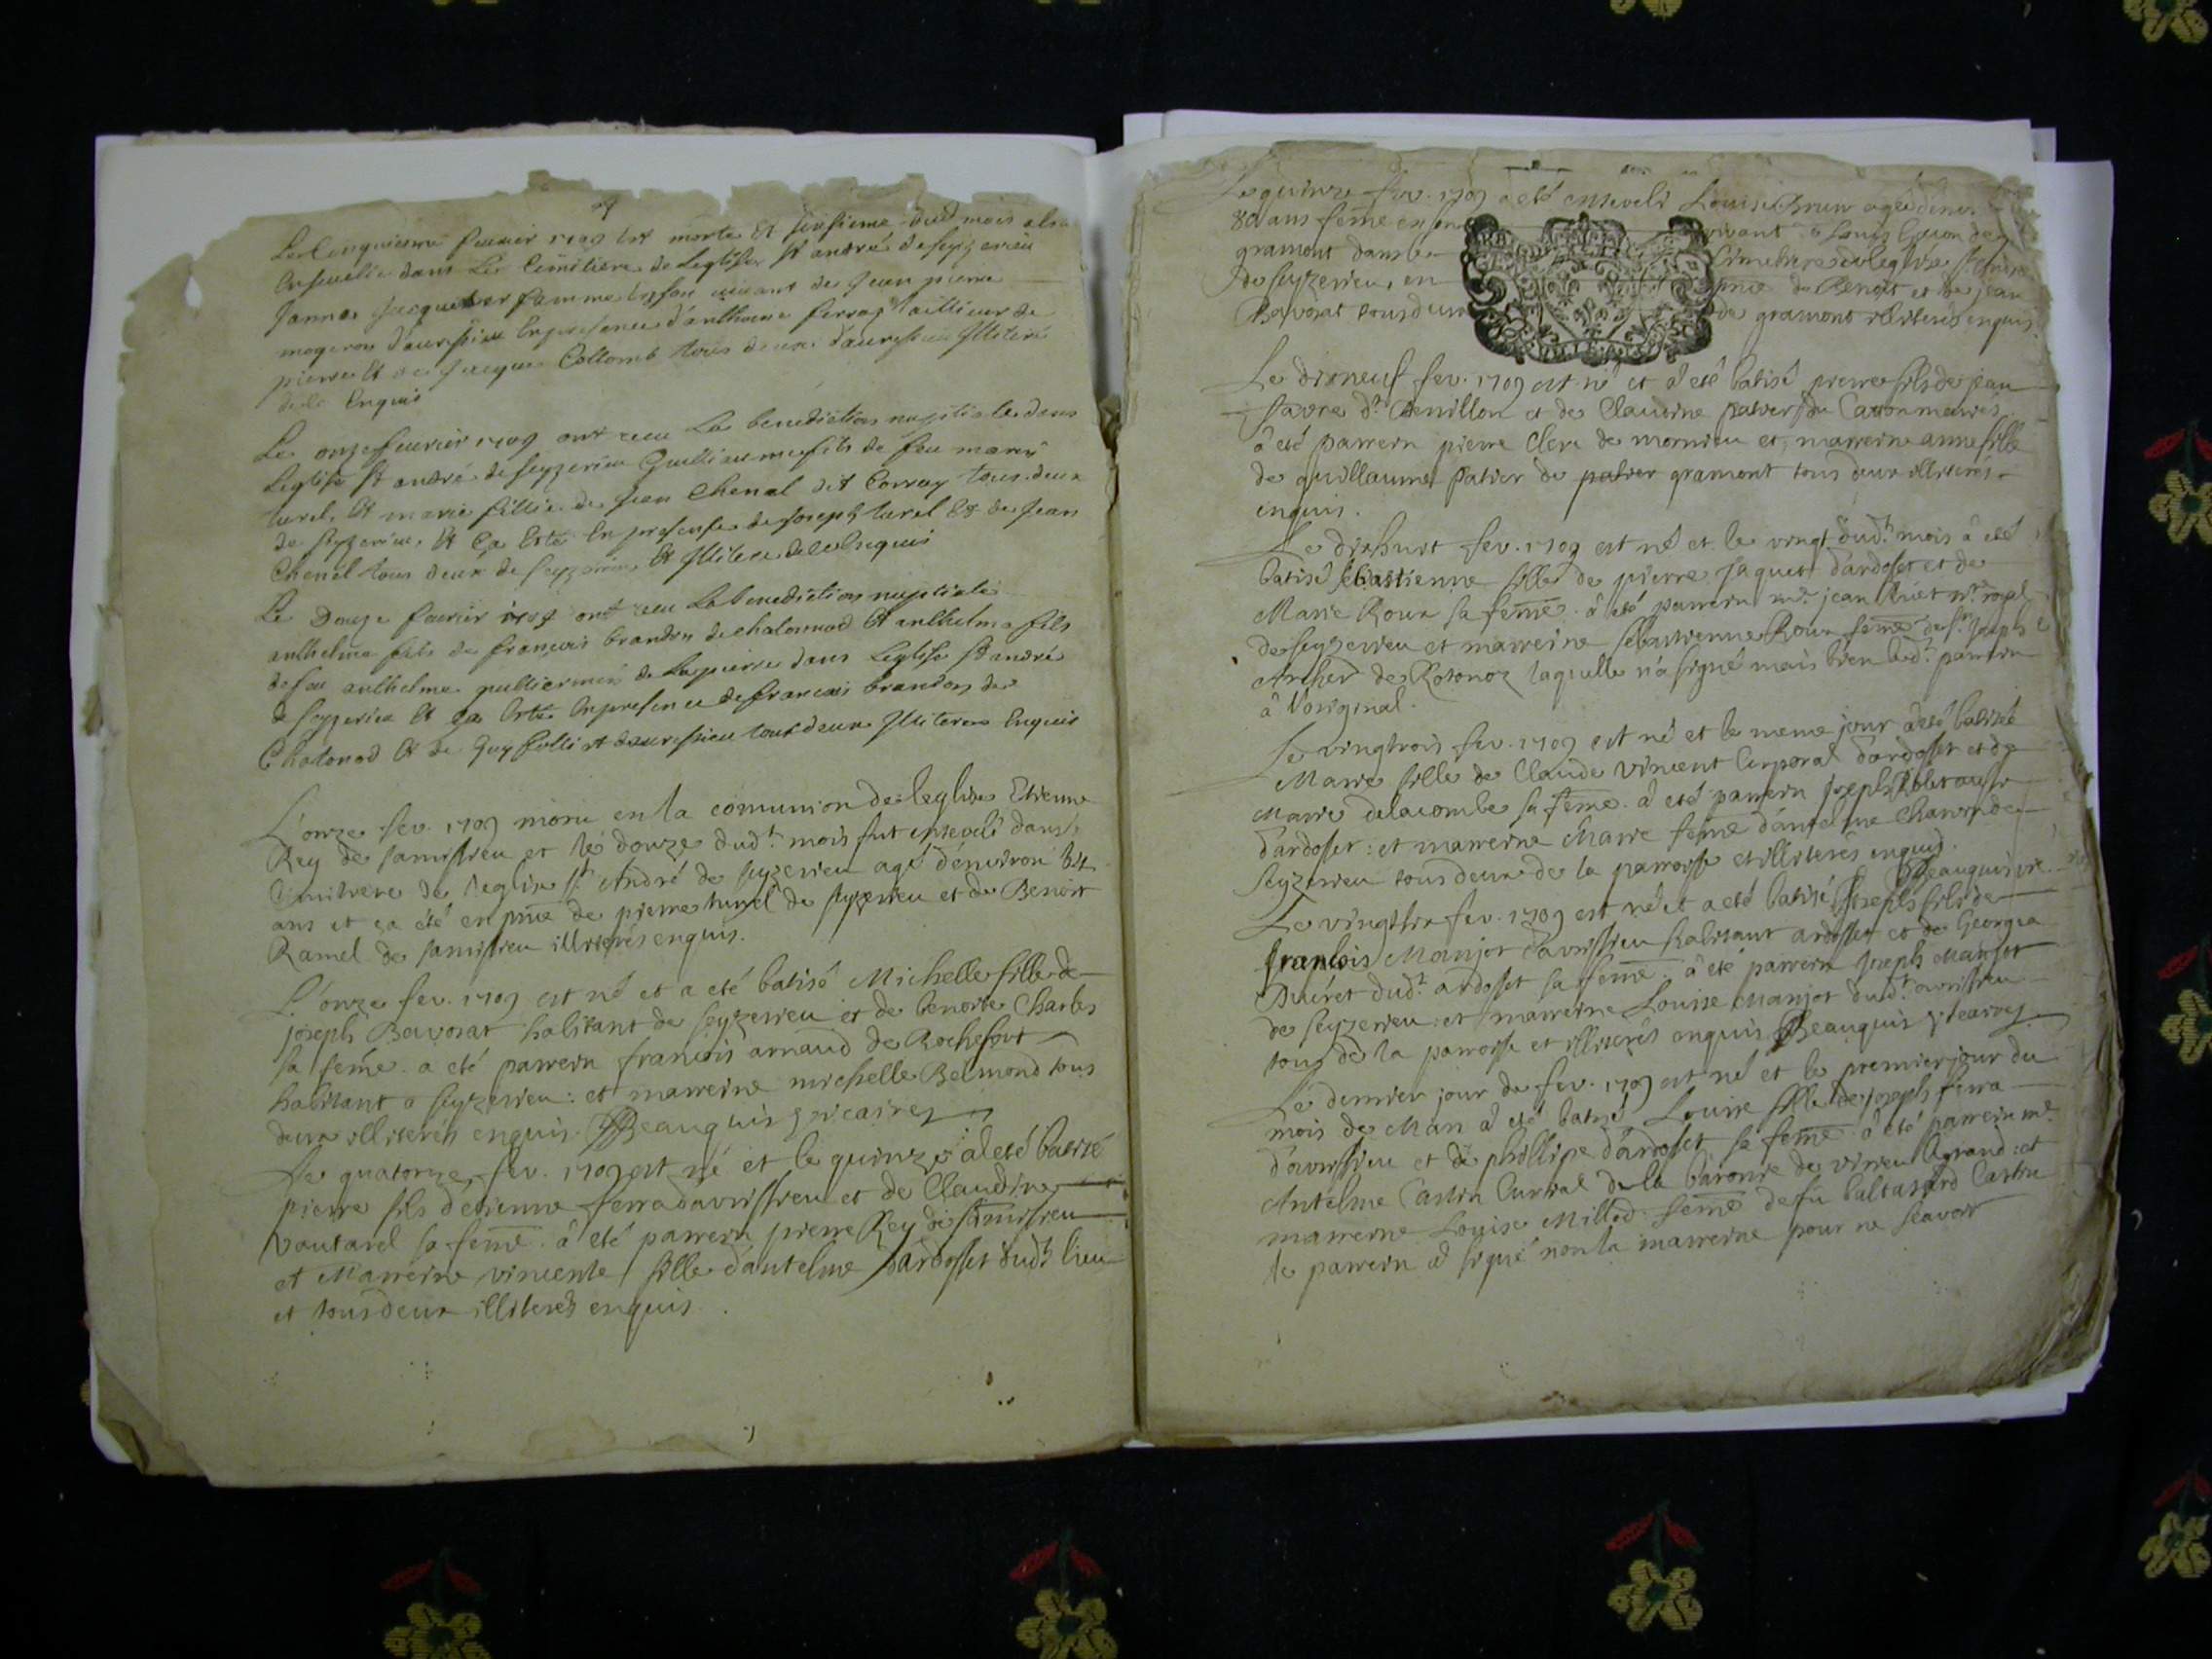 Le Cinquieme feurier 1709 est morte Et sixsieme dud mois a este
Enseuelie dans Le Cimitiere de Leglise St andre de seyzerieu
Janne Jacquet er famme En son viuant de Jean pierre
mogeron d'auressieu En presence d'anthoine ferraz tallieur de
pierre Et de Jacque Collomb tous deux d'auressieu Illiteré
de le Enquis
Le onze feurier 1709 ont receu La benediction nuptiale dans
Leglise St andré de seyzerieu Guilliaume fils de feu marin
turel Et marie fillie de Jean Chenal dit Corraz tous deux
de seyzerieu, Et Ça Esté En presense de Joseph turel Et de Jean
Chenel tous deux de seyzerieu Et Illiteré de le Enquis
Le Douze feurier 1709 ont receu La benediction nuptiale
anthelme fils de françois brandon de chatonnod Et anthelma fils
de feu anthelme guilliermin de Lapierre dans Leglise St andré
de seyzerieu Et Ça Esté En presence de francois brandon de
Chatonod Et de Guy follit d'auressieu tout deux Illiteres Enquis
L'onze fev. 1709 moru en la comunion de leglise Etienne
Rey de samissieu et le douze dudt. mois fut enseveli dans
Cimitiere de l'eglise St André de seyzerieu agé d'environ
ans et ça été en pnce de pierre turel de seyzerieu et de Benoit
Ramel de samissieu illiterés enquis.
L'onze fev. 1709 est né et a eté batisé Michelle fille de
joseph Bavosat habitant de seyzerieu et de benoite Charles
sa feme. a eté parrein francois arnaud de Rochefort
habitant a seyzerieu: et marreine michelle Belmond tous
deux illiterés enquis. Beauquis vicaire
Le quatorze fev. 1709 est né et le quinze a eté batisé
pierre fils d'etienne ferra d'avrissieu et de Claudine
vautarel sa feme. â eté parrein pierre Rey de samissieu
et Marreine vincente fille d'antelme d'ardosset dudt lieu
et tous deux illiterés enquis.
Le quinze fev. 1709 a eté enseveli Louise Brun agée d'envi
80 ans feme en son vivant a Louis Guion de
gramont dans le Cimetiere de leglise St André
de seyzerieu, en pnce de Benoit et de jean
Bavosat tous deux de gramont illiterés enquis.
Le dixneuf fev. 1709 est né et â eté batisé pierre fils de jean
favre dt. Chenillon et de Claudine patier sa mariés
â eté parrein pierre Clerc de mornieu et marreine anne fille
de guillaume Patier de patier gramont tous deux illiterés
enquis.
Le dixhuit fev. 1709 est né et le vingt dudt. mois â eté
batisé sebastienne fille de pierre jaquet d'ardosset et de
Marie Roux sa feme. â eté parrein mr. jean nre royal
de seyzerieu et marreine sebastienne Roux feme de Sr joseph
Archer de Rotonoz laquelle n'a signé mais bien ledt. parrein
â l'original.
Le vingtrois fev. 1709 est né et le meme jour a eté batisée
Marie fille de Claude vincent Corporal d'ardosset et de
Marie delacombe sa feme. â eté parrein joseph aussi
d'ardosset: et marreine Marie feme d'antelme de
seyzerieu tous deux de la parroisse et illiterés enquis. Beauquis vic.
Le vingtsix fev. 1709 est né et a eté batisé joseph fils de
françois Manjot d'avrissieu habitant ardosset et de Georgea
Buéret dudt. ardosset sa feme. â eté parrein joseph Manjot
de seyzerieu: et marreine Louise Manjot dudt. avrissieu
tous de la parroisse et illiterés enquis. Beauquis vicaire
Le dernier jour de fev. 1709 est né et le premier jour du
mois de Mars â eté batisé Louise fille de joseph ferra
d'avrissieu et de phillipe d'ardosset sa feme. â eté parrein mr.
Antelme Castin Curial de la baronie de virieu legrand: et
marreine Louise Millod feme de fû baltasard Castin
le parrein a signé non la marreine pour ne scavoir